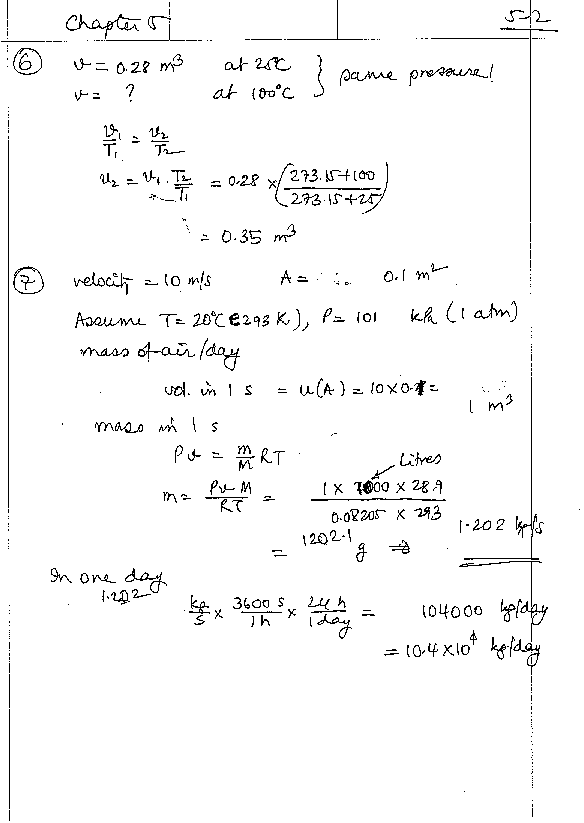 Chapter 5
5-2
6 v = 0.28 m³ at 25°C } same pressure!
v = ? at 100°C
v₁/T₁ = v₂/T₂
v₂ = v₁ · T₂/T₁ = 0.28 × (273.15+100 / 273.15+25)
= 0.35 m³
7 velocity = 10 m/s A = 0.1 m²
Assume T = 20°C (293 K), P = 101 kPa (1 atm)
mass of air/day
vol. in 1 s = u(A) = 10 × 0.1 = 1 m³
mass in 1 s
Pv = m/M RT
Litres
m = PvM/RT = 1 × 1000 × 28.9 / 0.08205 × 293
= 1202.1 g ⇒ 1.202 kg/s
In one day
1.202 kg/s × 3600 s/1 h × 24 h/1 day = 104000 kg/day
= 10.4 × 10⁴ kg/day